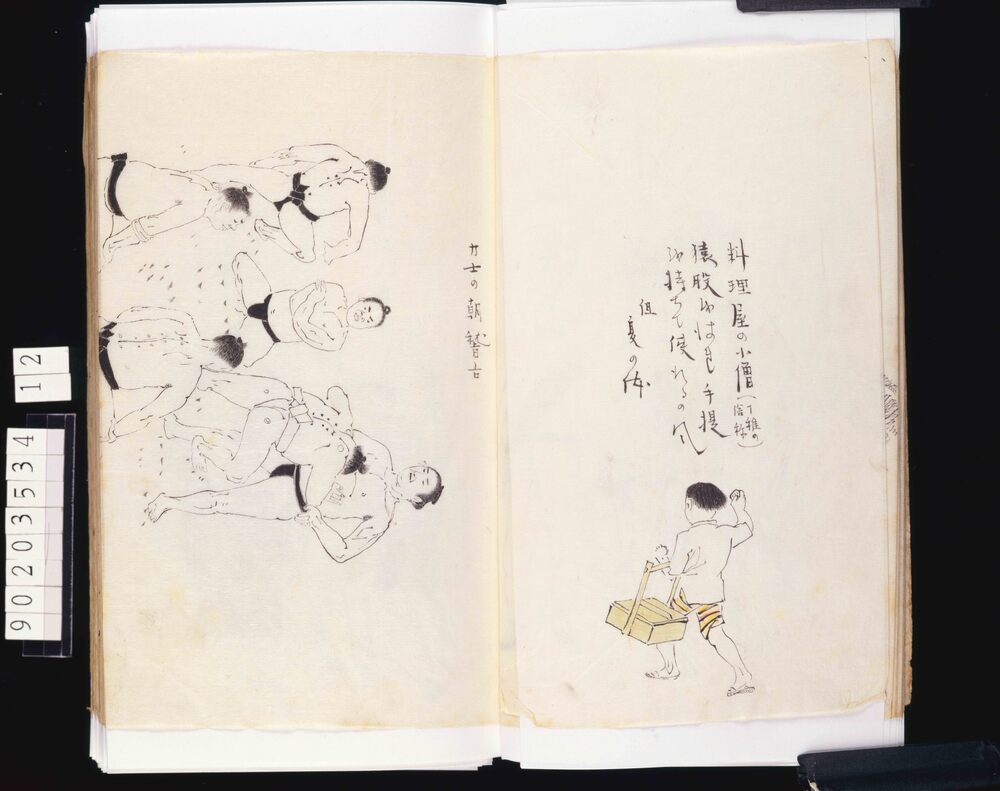 料理屋の小僧(丁稚の
俗称)
猿股をはき手提
を持ちて使れるの風
但
夏の体
力士の朝稽古
90203534
12